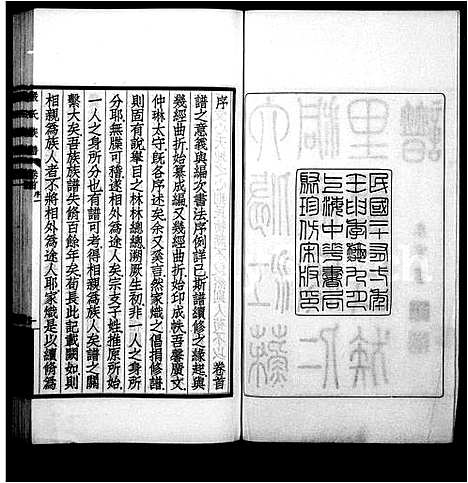 上海中華書局
聚珍仿宋版印
序
卷首
譜之意義與編次書法序例詳已斯譜續修之緣起與
幾經曲折始纂成編又幾經曲折始印成帙吾馨廣文
仲琳太守既各序述矣余又奚言然家熾之倡捐修譜
則固有說舉目之林林總總溯厥生初非一人之身所
分耶無牒可稽遂相外為途人矣宗支子姓推原所始
一人之身所分也有譜可考遂相親為族人矣譜之關
繫大矣吾族族譜失脩百餘年矣苟長此記載闕如則
相親為族人者不將相外為途人耶家熾是以續脩為
氏族譜
卷首
序